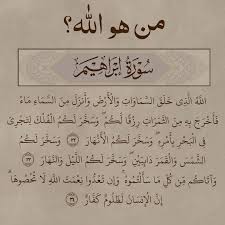 من هو الله؟
سُورَةُ إِبْرَاهِيم
اللَّهُ الَّذِي خَلَقَ السَّمَاوَاتِ وَالْأَرْضَ وَأَنْزَلَ مِنَ السَّمَاءِ مَاءً
فَأَخْرَجَ بِهِ مِنَ الثَّمَرَاتِ رِزْقًا لَكُمْ وَسَخَّرَ لَكُمُ الْفُلْكَ لِتَجْرِيَ
فِي الْبَحْرِ بِأَمْرِهِ وَسَخَّرَ لَكُمُ الْأَنْهَارَ ﴿٣٢﴾ وَسَخَّرَ لَكُمُ
الشَّمْسَ وَالْقَمَرَ دَائِبَيْنِ وَسَخَّرَ لَكُمُ اللَّيْلَ وَالنَّهَارَ ﴿٣٣﴾
وَآتَاكُمْ مِنْ كُلِّ مَا سَأَلْتُمُوهُ وَإِنْ تَعُدُّوا نِعْمَتَ اللَّهِ لَا تُحْصُوهَا
إِنَّ الْإِنْسَانَ لَظَلُومٌ كَفَّارٌ ﴿٣٤﴾